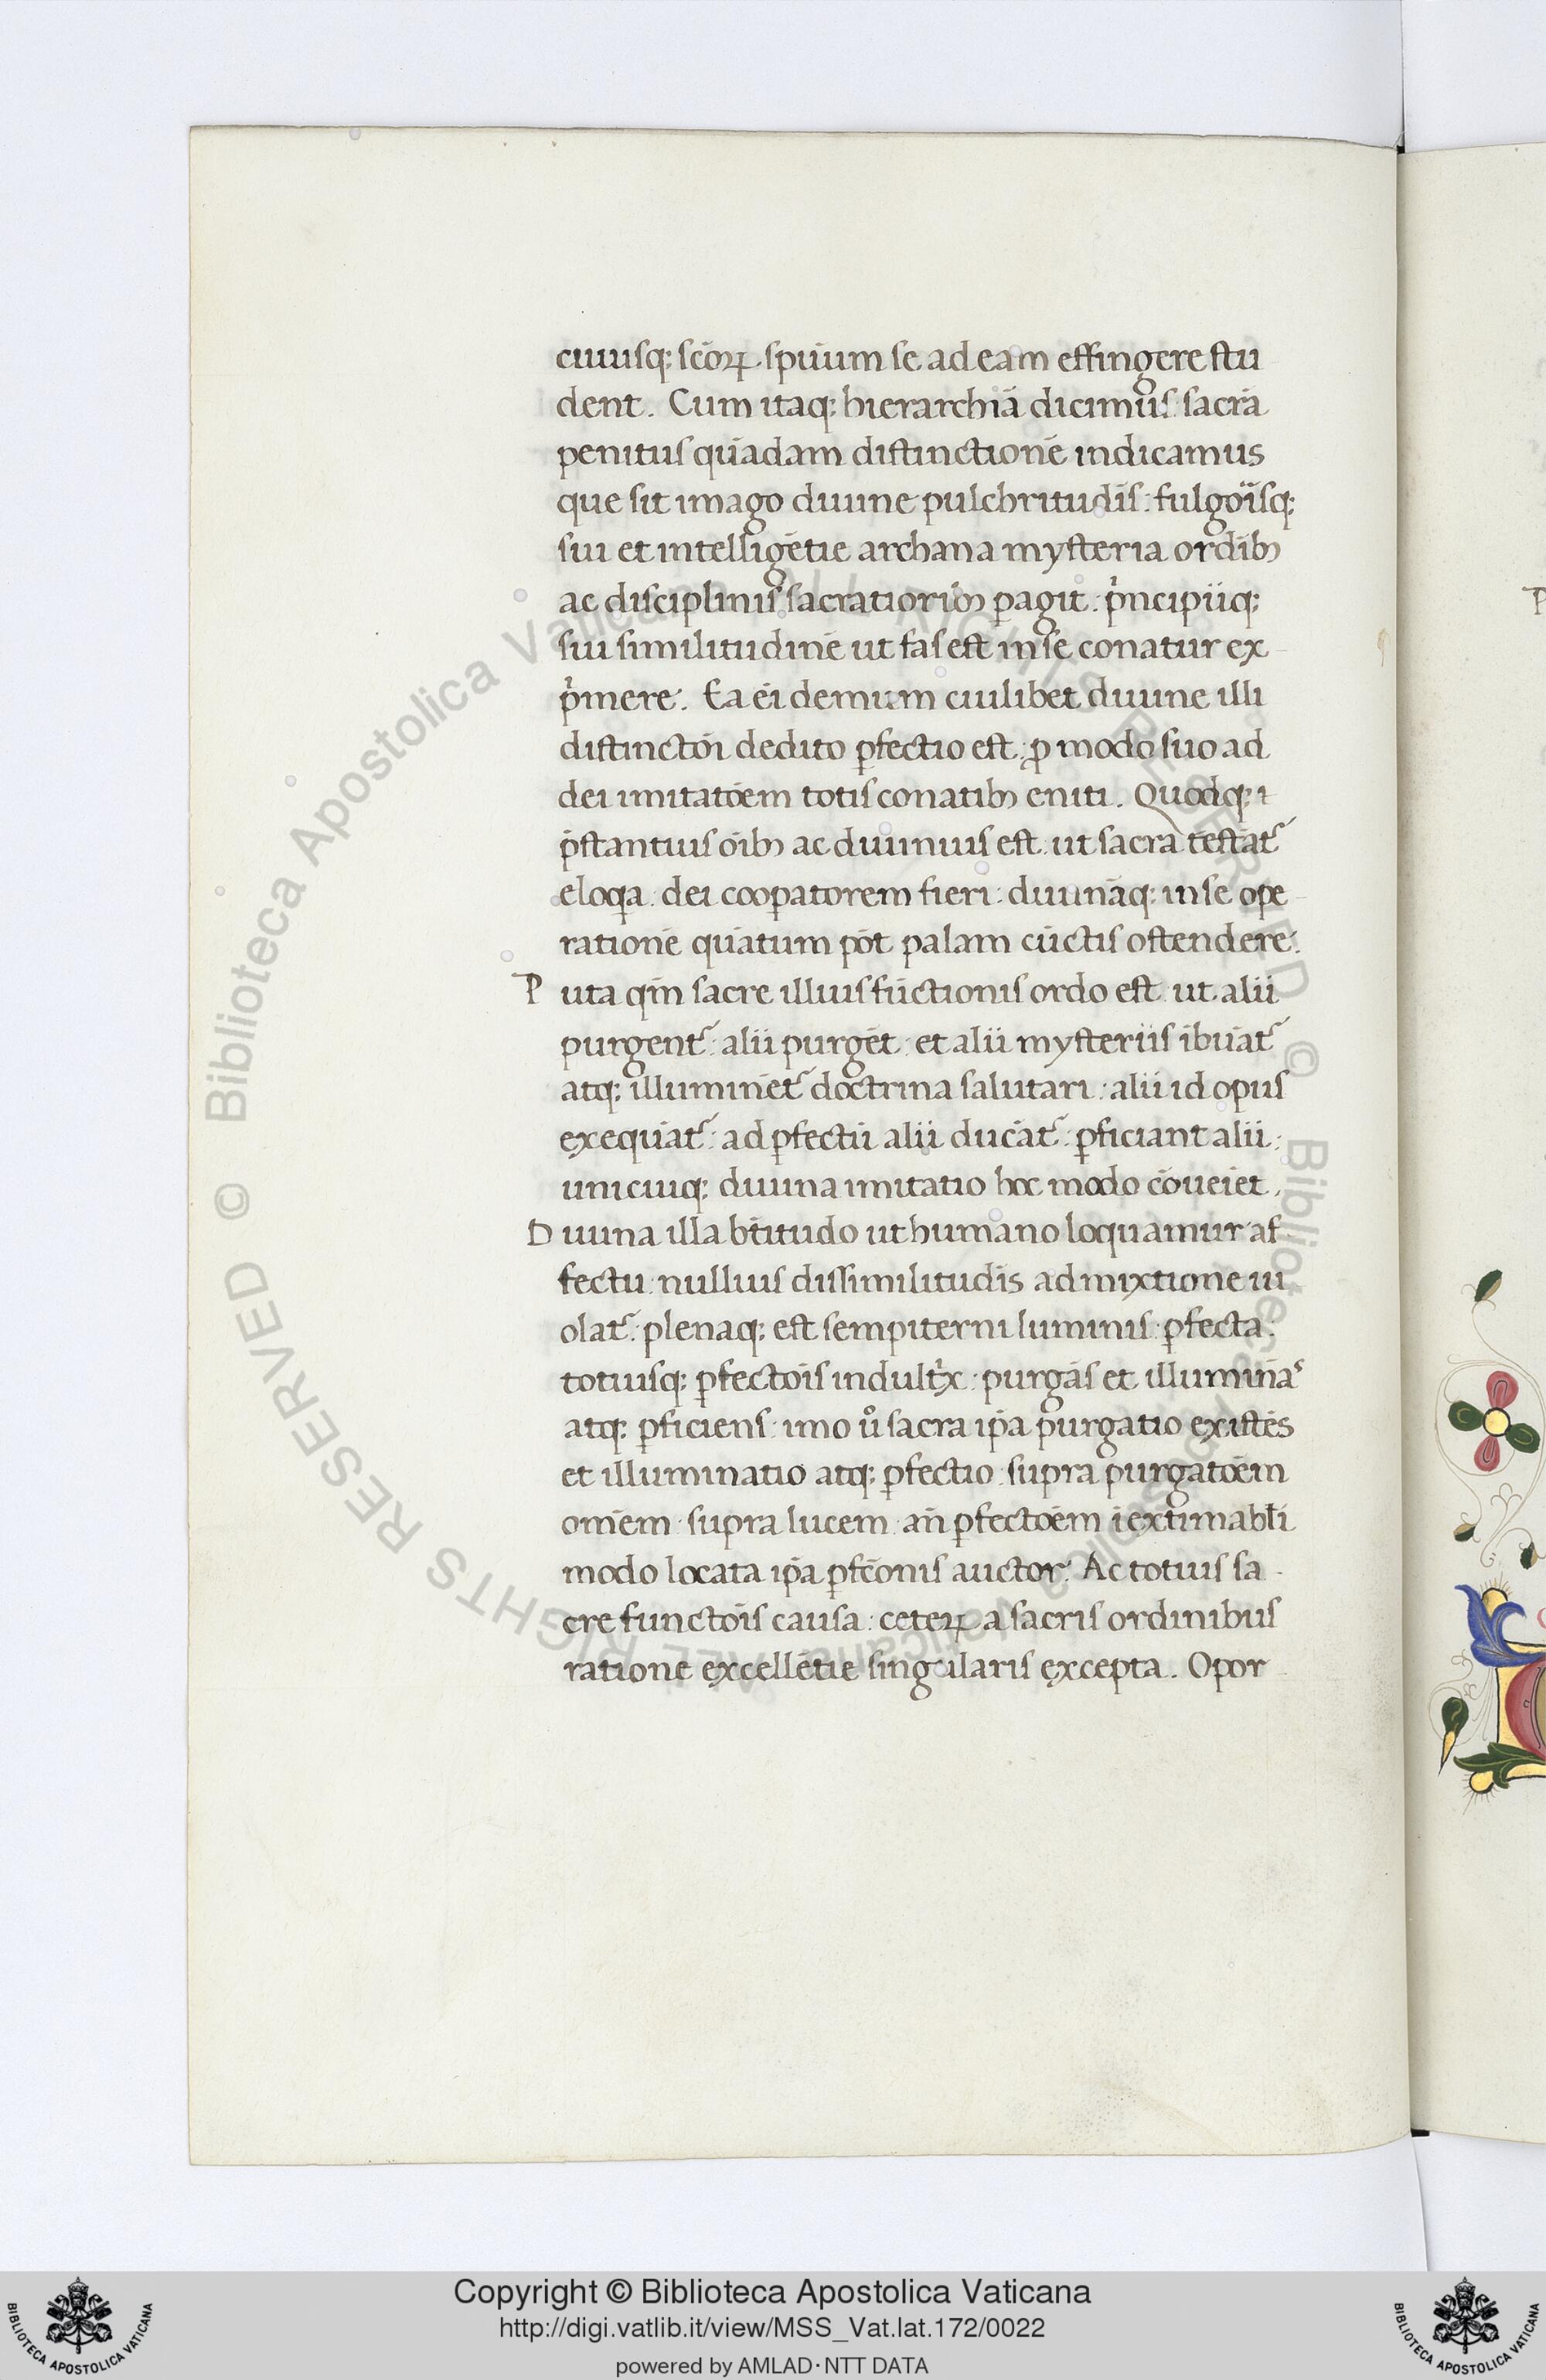 cuiusq; sc̄oꝝ spūum se ad eam effingere stu
dent. Cum itaq; hierarchiā dicimus: sacrā
penitus quādam distinctionē indicamus
que sit imago diuine pulchritudīs: fulgoīsq;
sui et intelligētie archana mysteria ordib;
ac disciplinis sacratiorib; ꝑagit: pͥncipiiq;
sui similitudinē ut fas est in se conatur ex
pͥmere. Ea ēi demum cuilibet diuine illi
distinctōi dedito ꝑfectio est: ꝓ modo suo ad
dei imitatōem totis conatib; eniti. Quodq; ī
p̄stantius oīb; ac diuinius est: ut sacra testāt᷑
eloqa: dei cooꝑatorem fieri: diuināq; in se ope
rationē quātum pōt palam cūctis ostendere.
P uta qm̄ sacre illius fūctionis ordo est: ut alii
purgent᷑: alii purgēt: et alii mysteriis ībuāt᷑
atq; illuminēt᷑ doctrina salutari: alii id opus
exequāt᷑: ad ꝑfectū alii ducāt᷑: ꝑficiant alii:
unicuiq; diuina imitatio hoc modo cōueīet.
D iuina illa bt̄itudo ut humano loquamur af
fectu: nullius dissimilitudīs admixtione ui
olat᷑: plenaq; est sempiterni luminis: ꝑfecta:
totiusq; ꝑfectōis indultͥx: purgās et illuminās
atq; ꝑficiens: imo uͦ sacra ip̄a purgatio existēs
et illuminatio atq; ꝑfectio: supra purgatōem
omēm: supra lucem: an̄ ꝑfectōem īextimabl̄i
modo locata ip̄a ꝑfc̄onis auctor. Ac totius sa
cre functōis causa: ceteꝝ a sacris ordinibus
ratione excellētie singularis excepta. Opor
P
© Biblioteca Apostolica Vaticana ALL RIGHTS RESERVED © Biblioteca Apostolica Vaticana ALL RIGHTS RESERVED
Copyright © Biblioteca Apostolica Vaticana
http://digi.vatlib.it/view/MSS_Vat.lat.172/0022
powered by AMLAD·NTT DATA
BIBLIOTECA APOSTOLICA VATICANA
BIBLIOTECA APOSTOLICA VATICANA